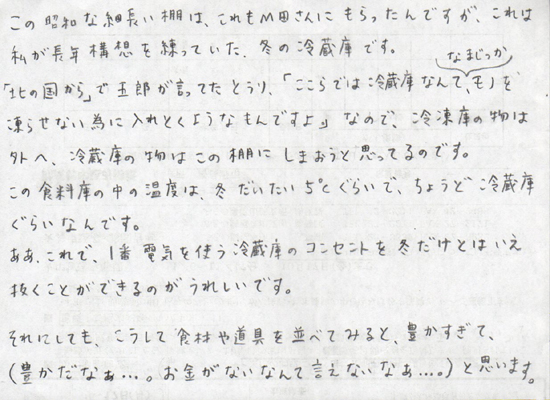 この昭和な細長い棚は、これもM田さんにもらったんですが、これは
私が長年構想を練っていた、冬の冷蔵庫です。
なまじっか
「北の国から」で五郎が言ってたとうり、「ここらでは冷蔵庫なんて、モノを
凍らせない為に入れとくようなもんですよ」なので、冷凍庫の物は
外へ、冷蔵庫の物はこの棚にしまおうと思ってるのです。
この食料庫の中の温度は、冬だいたい5℃ぐらいで、ちょうど冷蔵庫
ぐらいなんです。
ああ、これで、1番電気を使う冷蔵庫のコンセントを冬だけとはいえ
抜くことができるのがうれしいです。
それにしても、こうして食材や道具を並べてみると、豊かすぎて、
(豊かだなぁ…。お金がないなんて言えないなぁ…。)と思います。